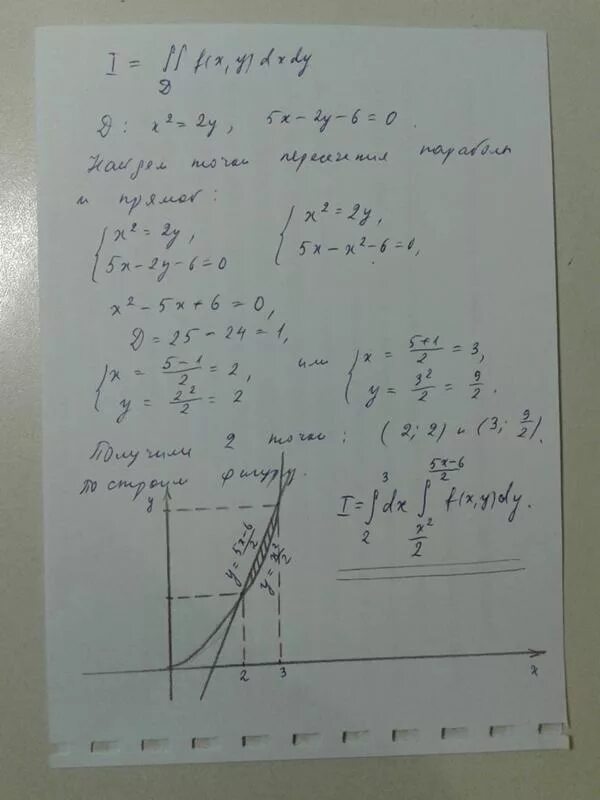 I = ∬_D f(x,y) dxdy
D: x² = 2y, 5x-2y-6=0.
Найдем точки пересечения параболы
и прямой:
{ x² = 2y, 5x-2y-6=0 { x² = 2y, 5x-x²-6=0,
x²-5x+6=0,
D=25-24=1,
{ x = (5-1)/2 = 2, y = 2²/2 = 2 или { x = (5+1)/2 = 3, y = 3²/2 = 9/2.
Получили 2 точки: (2;2) и (3; 9/2).
Построим фигуру.
I = ∫_2^3 dx ∫_{x²/2}^{(5x-6)/2} f(x,y)dy.
y
y = (5x-6)/2
y = x²/2
2 3 x